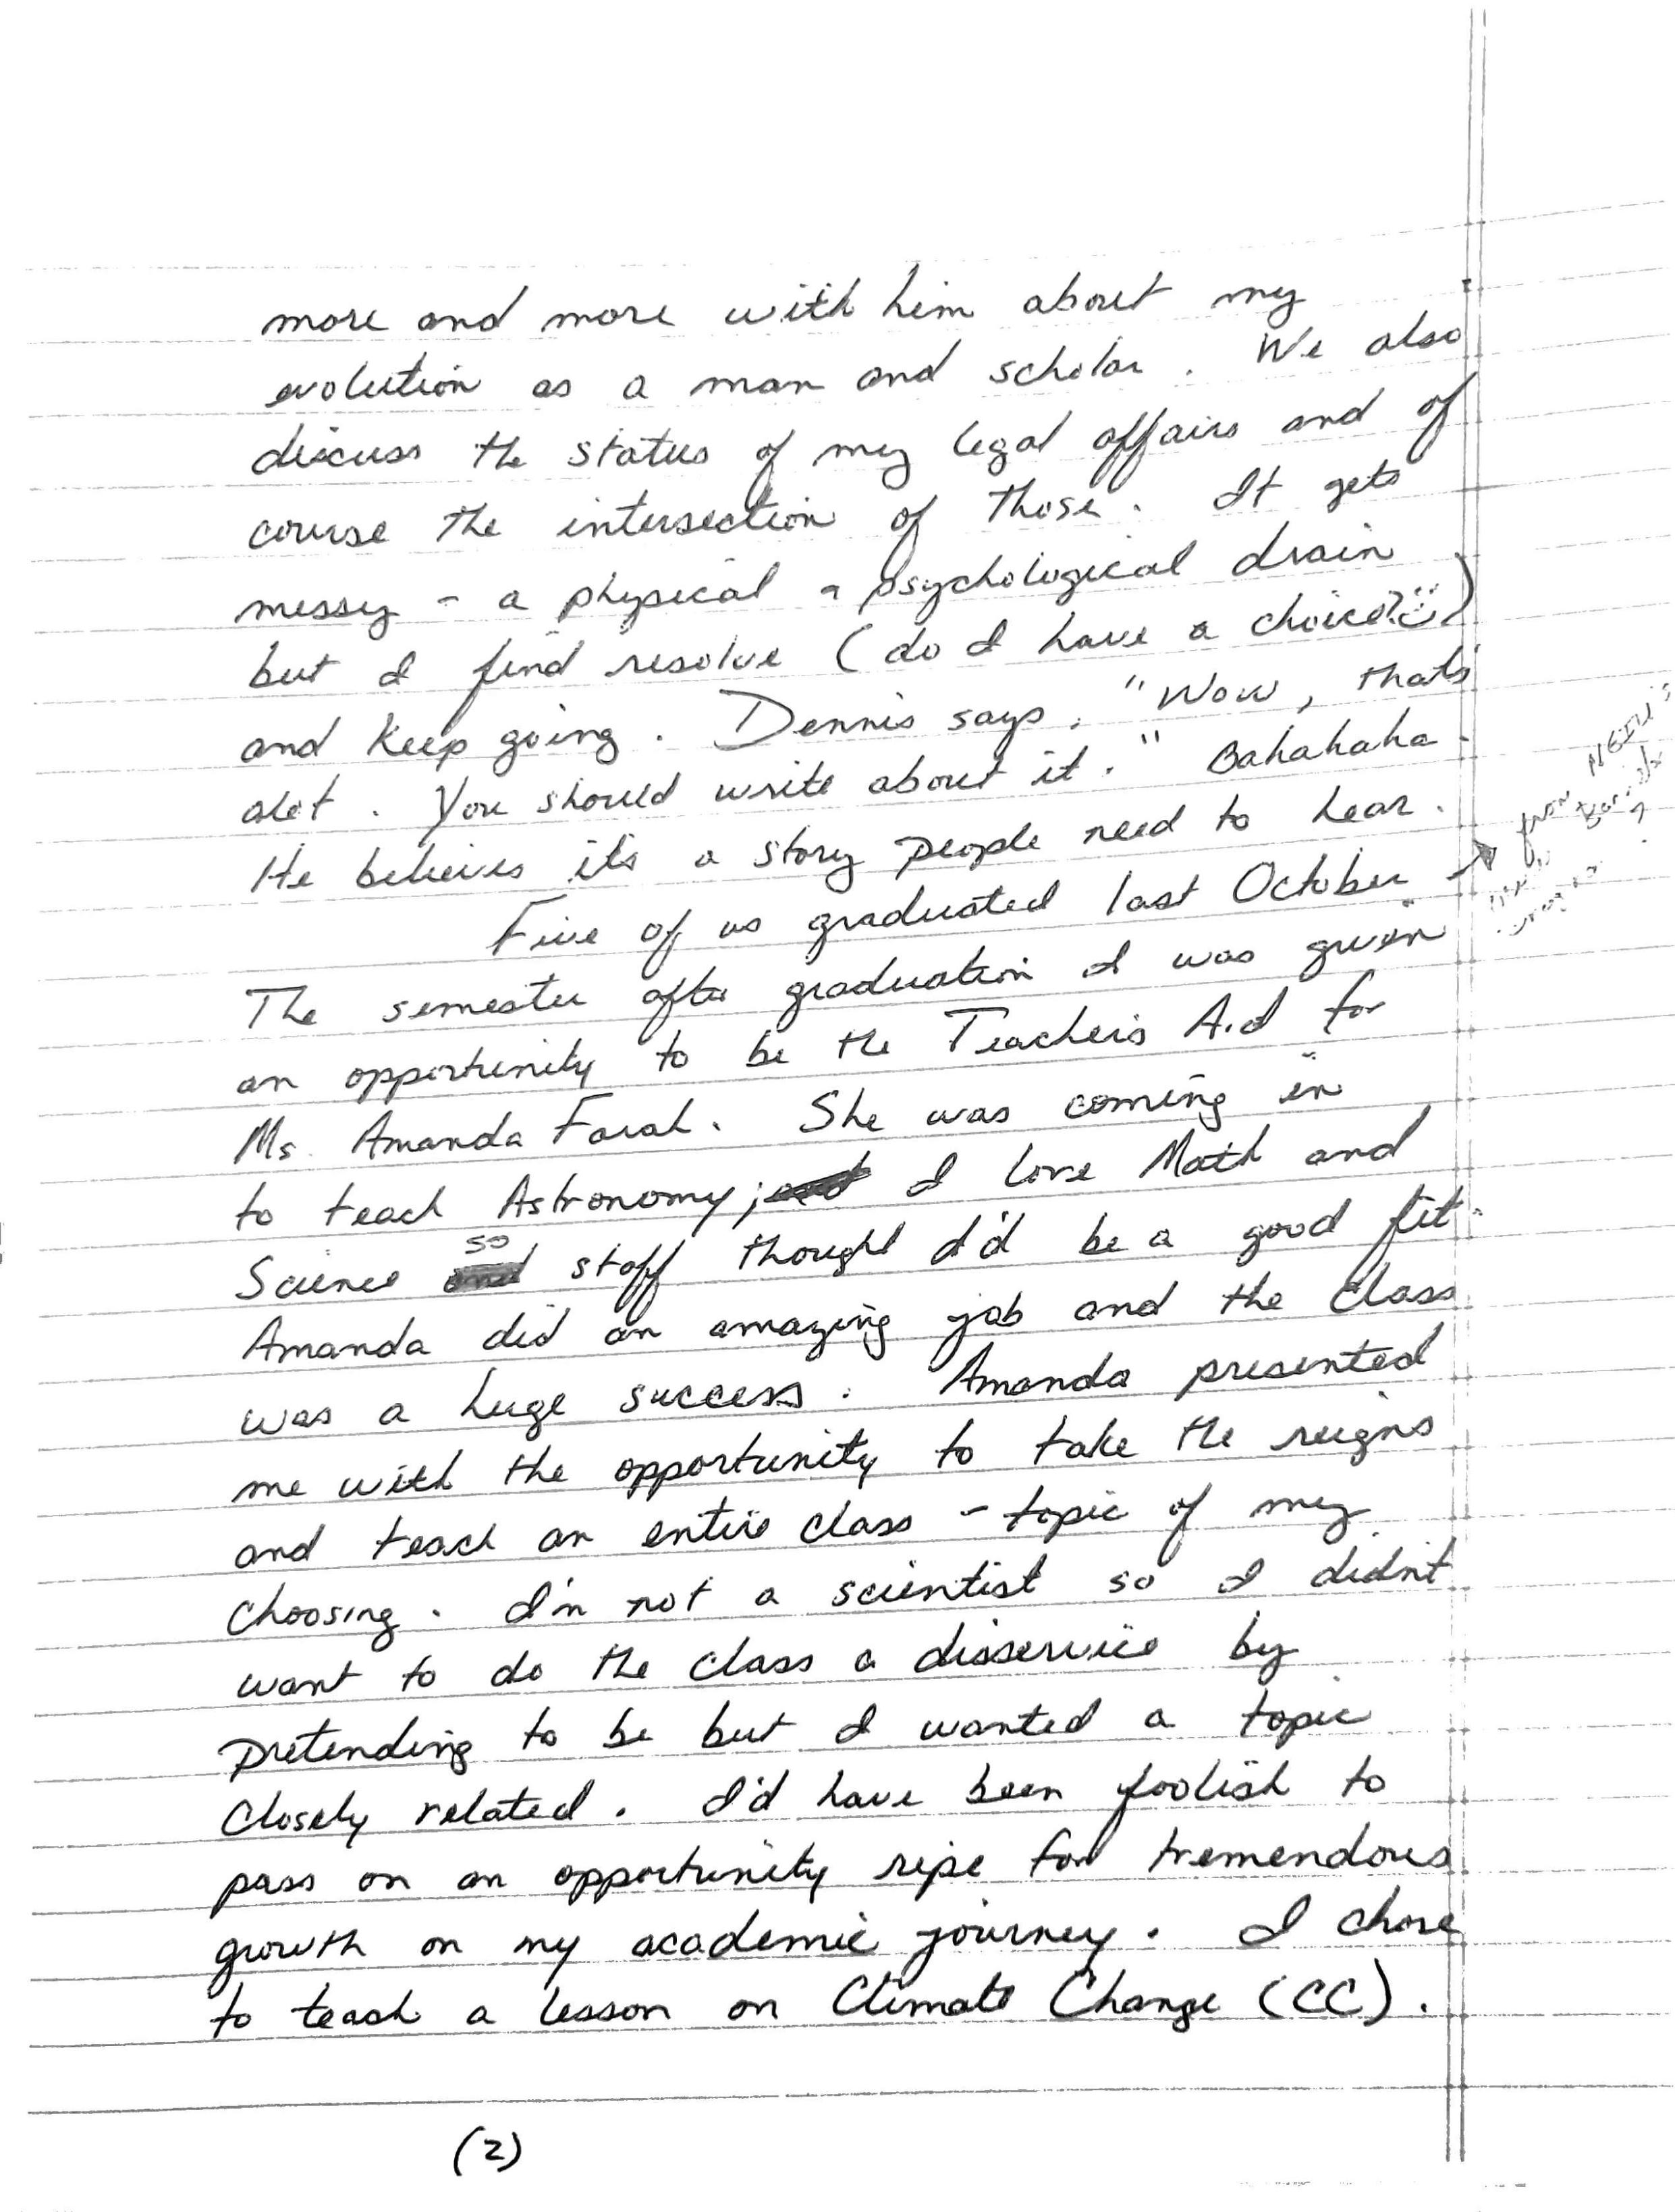 more and more with him about my
evolution as a man and scholar. We also
discuss the status of my legal affairs and of
course the intersection of those. It gets
messy - a physical - psychological drain
but I find resolve (do I have a choice?☺)
and keep going. Dennis says, "Wow, thats
alot. You should write about it." Bahahaha
He believes its a story people need to hear.
Five of us graduated last October → from NEIU's
The semester after graduation I was given
an opportunity to be the Teacher's Aid for
Ms. Amanda Farah. She was coming in
to teach Astronomy; I love Math and
Science so staff thought I'd be a good fit.
Amanda did an amazing job and the class
was a huge success. Amanda presented
me with the opportunity to take the reigns
and teach an entire class - topic of my
choosing. I'm not a scientist so I didn't
want to do the class a disservice by
pretending to be but I wanted a topic
closely related. I'd have been foolish to
pass on an opportunity ripe for tremendous
growth on my academic journey. I chose
to teach a lesson on Climate Change (CC).
(2)